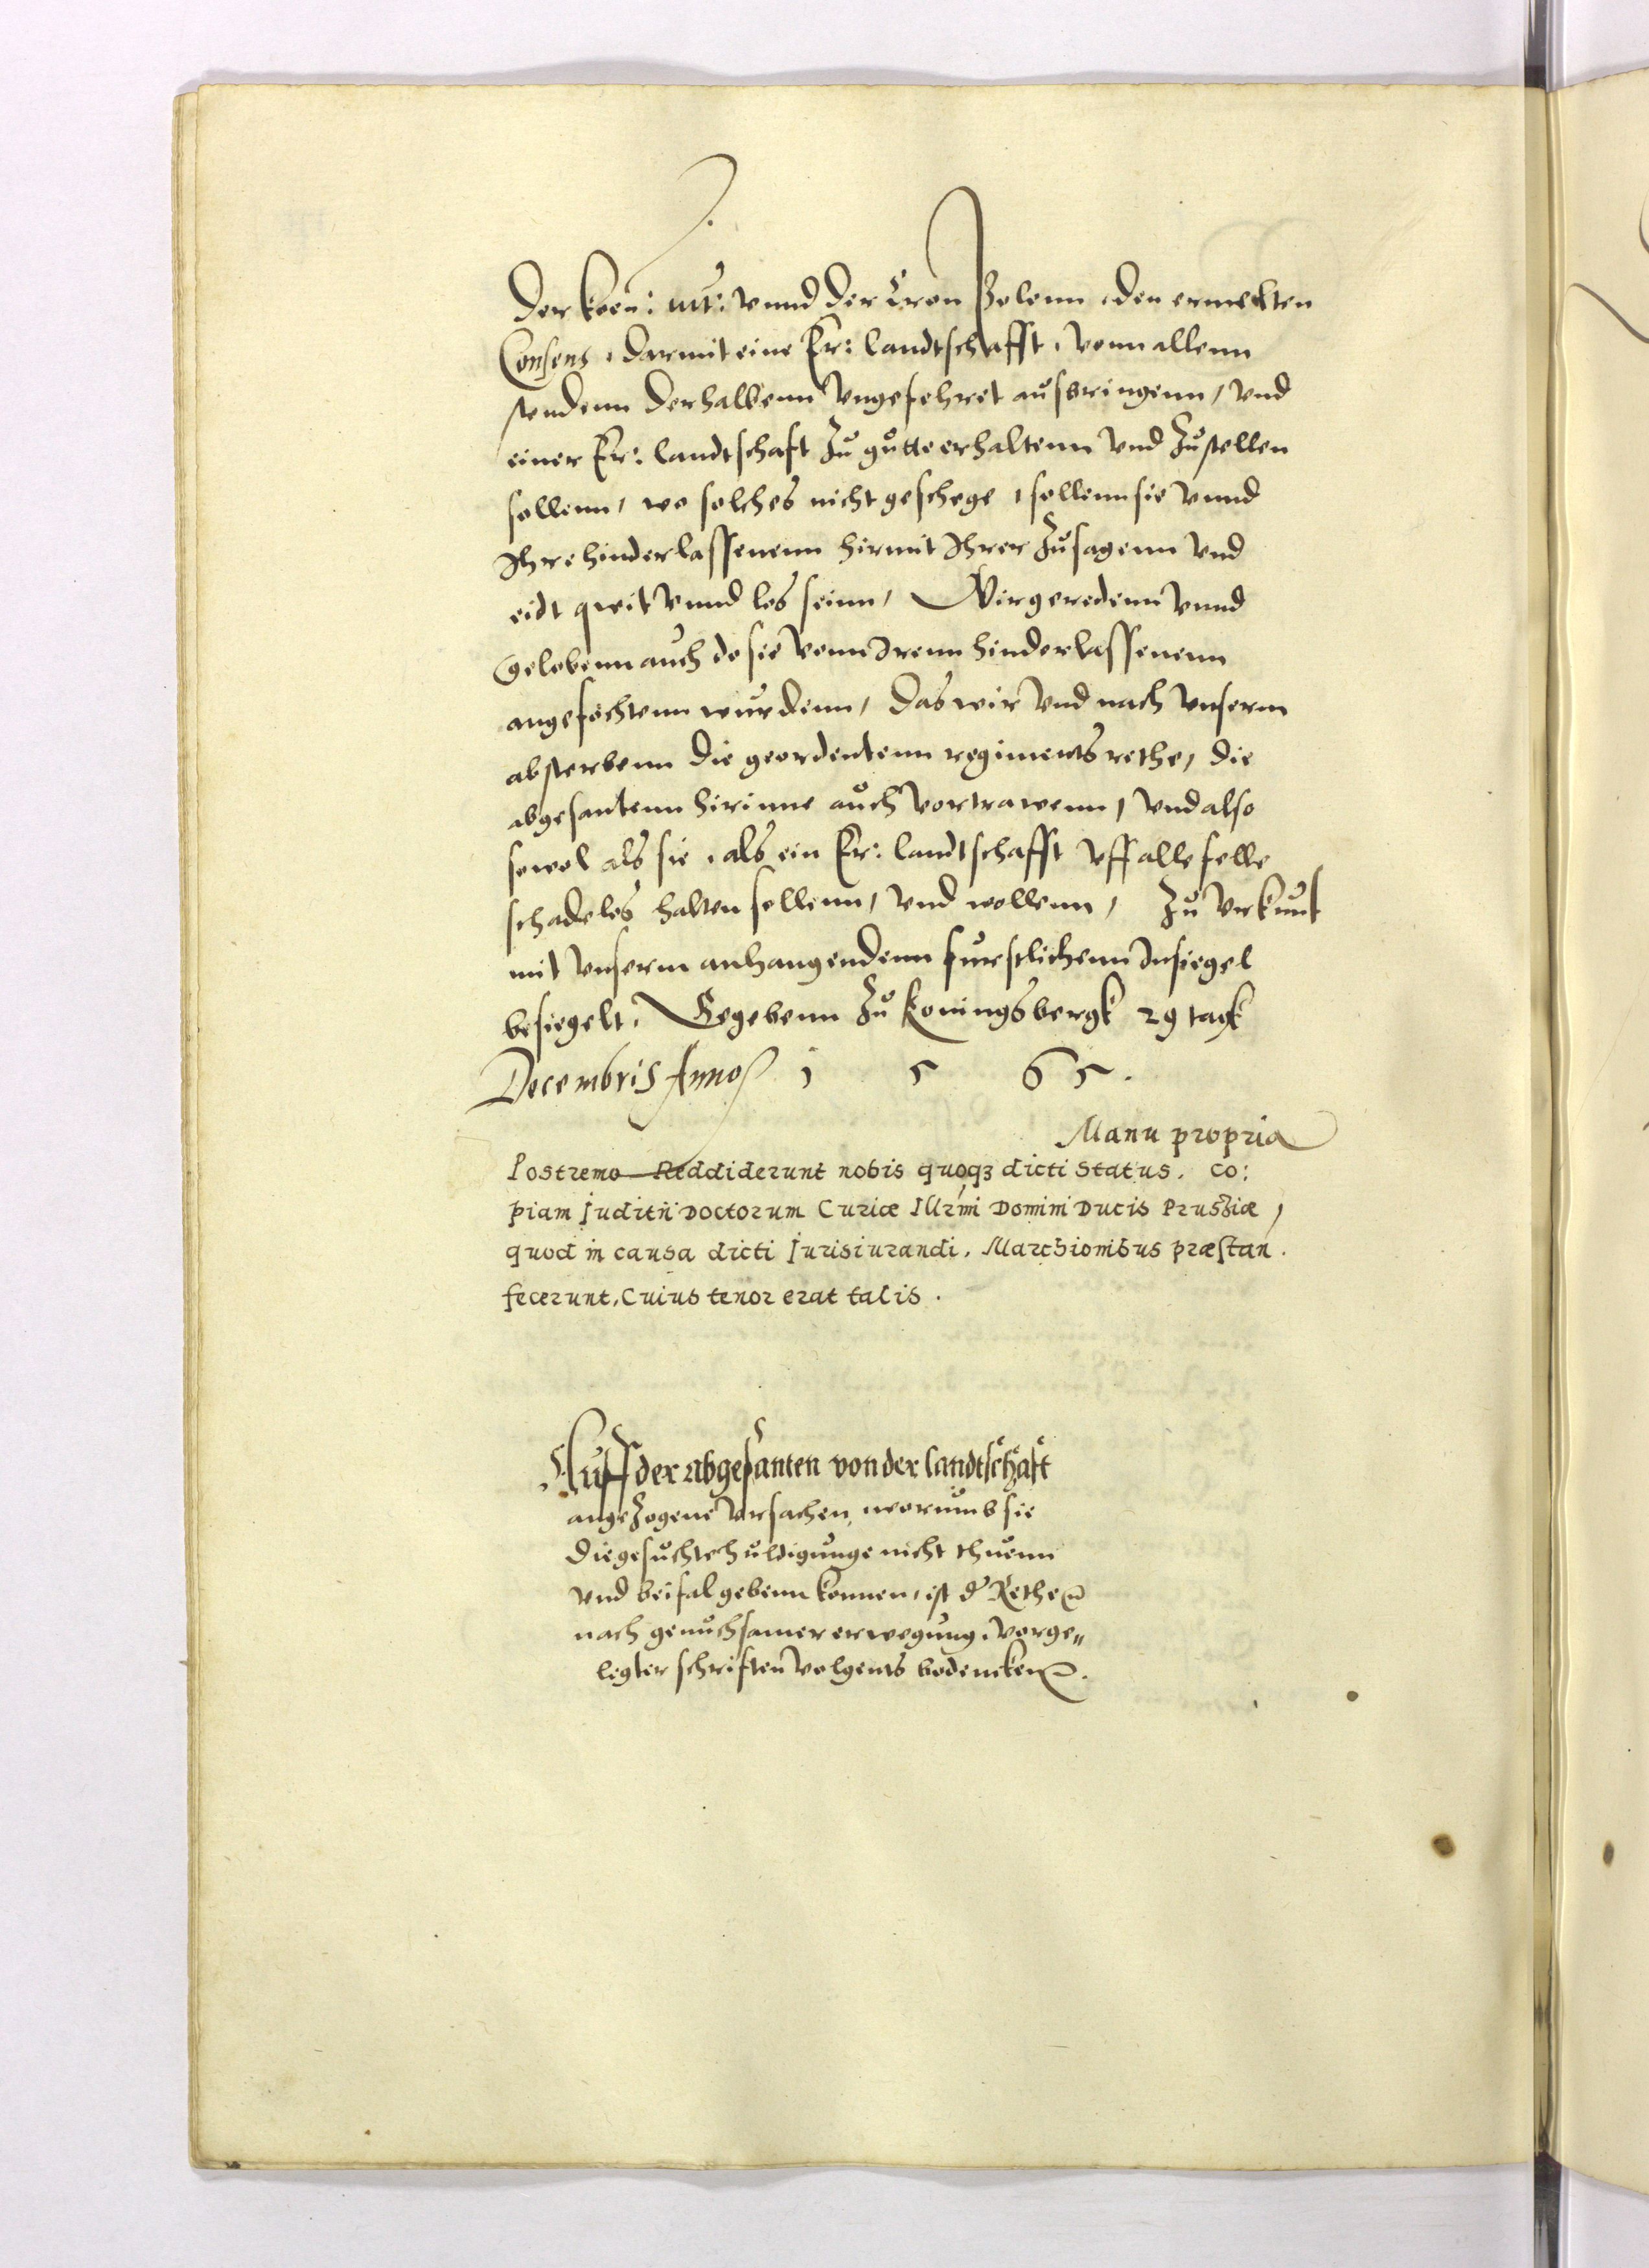 Der koen: mt: vnnd der Cron Polenn, den ermelten
Consens, darmit eine Er: landtschafft, vonn allenn
stendenn derhalbenn vngefehret ausbringenn, vnd
einer Er: landtschaft zu gutte erhaltenn vnd zustellen
sollenn, wo solches nicht geschege, sollenn sie vnnd
Ihre hinderlassenenn hirmit Ihrer zusagenn vnd
eidt qweit vnnd los seinn, Wir geredenn vnnd
gelobenn auch do sie vonn Irenn hinderlassenenn
angefochtenn wurdenn, das wir vnd nach vnserm
absterbenn die geordentenn regiments rethe, die
abgesantenn hirinne auch vortrawenn, vnd also
sowol als sie, als ein Er: landtschafft vff alle felle
schadelos halten sollenn, vnd wollenn, Zu vrkunt
mit vnserm anhangendenn furstlichenn Insiegel
besiegelt. Gegebenn zu koningsbergk 29 tagk
Decembris Anno 1 5 6 5.
Manu propria
Postremo Reddiderunt nobis quoqȝ dicti status. co:
piam Juditii Doctorum Curiæ Illrmi Domini Ducis Prussiæ,
quod in causa dicti Jurisiurandi, Marchionibus præstan.
fecerunt, Cuius tenor erat talis.
Auff der abgesanten von der landtschaft
angezogene vrsachen, worumb sie
die gesuchte huldigunge nicht thuenn
vnd beifal gebenn konnen, ist d' Rethen
nach genuchsamer erwegung, vorge„
legter schriften volgents bedencken.